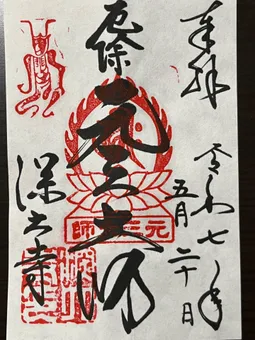 奉拝
令和七年
五月二十日
厄除
元三大師
深大寺
元三大師